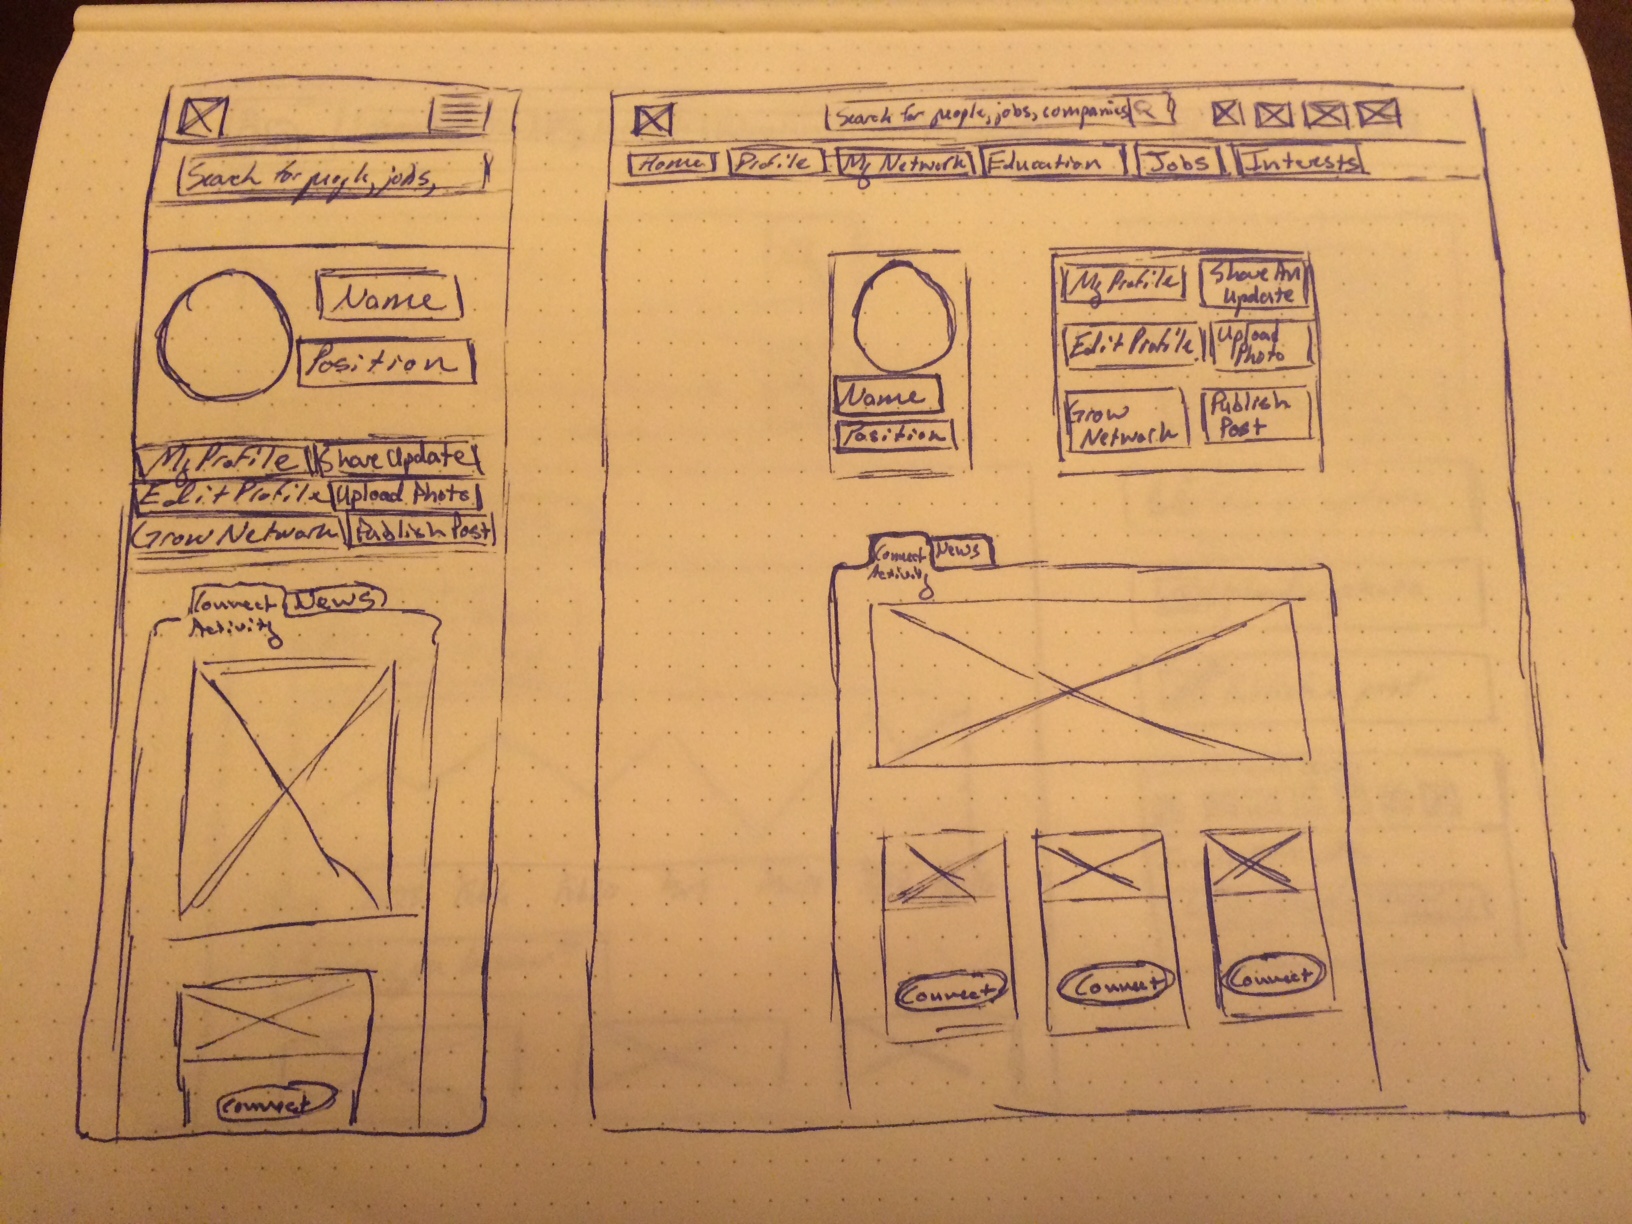 Search for people, jobs,
Name
Position
My Profile
Share Update
Edit Profile
Upload Photo
Grow Network
Publish Post
Connect
Activity
News
Connect
Search for people, jobs, companies
Home
Profile
My Network
Education
Jobs
Interests
Name
Position
My Profile
Share An
Update
Edit Profile
Upload
Photo
Grow
Network
Publish
Post
Connect
Activity
News
Connect
Connect
Connect